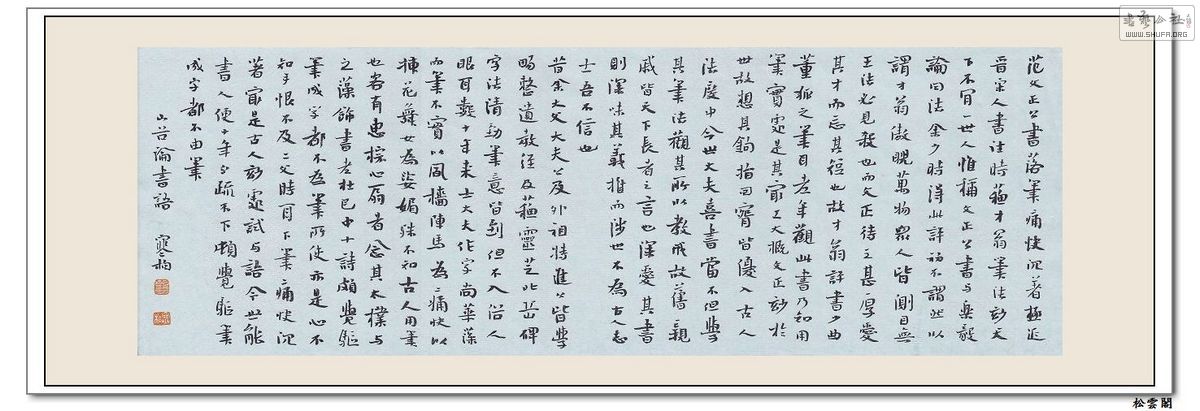 范文正公書落筆痛快沉著極近
晉宋人書往時蘇才翁筆法妙天
下不肯一世人惟稱文正公書與樂毅
論同法余少時得此評初不謂然以
謂才翁傲睨萬物眾人皆側目無
王法必見殺也而文正待之甚厚愛
其才而忘其短也故才翁評書少曲
董狐之筆耳老年觀此書乃知用
筆實處是其最工大概文正妙於
世故想其鉤指回腕皆優入古人
法度中今世大夫喜書當不但學
其筆法觀其所以教戒故舊親
戚皆天下長者之言也深愛其書
則深味其義推而涉世不為古人志
士吾不信也
昔余大父大夫公及外祖特進公皆學
暢整遺教經及蘇靈芝北岳碑
字法清勁筆意皆到但不入俗人
眼耳數十年來士大夫作字尚華藻
而筆不實以風檣陣馬為痛快以
插花舞女為姿媚殊不知古人用筆
也客有惠棕心扇者念其太樸與
之藻飾書老杜巴中十詩頗覺驅
筆成字都不為筆所使亦是心不
知手恨不及二父時耳下筆痛快沉
著最是古人妙處試以語今世能
書人便十年分疏不下頓覺驅筆
成字都不由筆
山谷論書語 寒
WWW.SHUFA.ORG
松雲閣